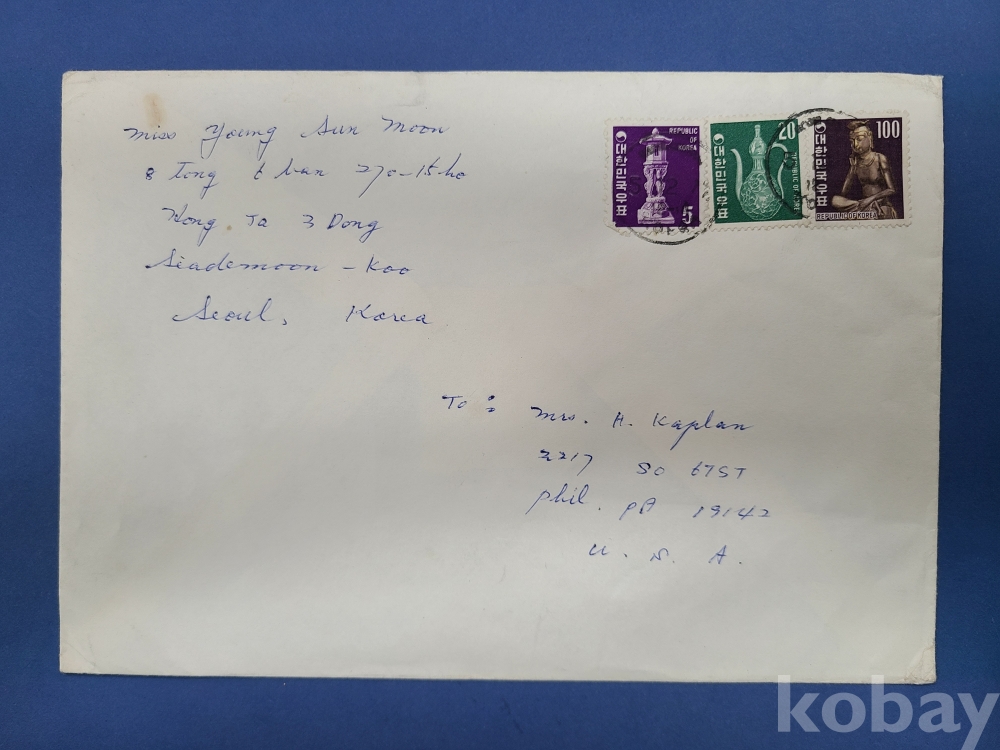 Miss Young Sun Moon
8 Tong 6 ban 270-15-ho
Hong Ja 3 Dong
Siademoon - Koo
Seoul, Korea
REPUBLIC
OF
KOREA
대한민국우표
5
20
대한민국우표
REPUBLIC OF KOREA
100
대한민국우표
REPUBLIC OF KOREA
To : Mrs. H. Kaplan
2217 SO 67ST
Phil. PA 19142
U. S. A.
kobay